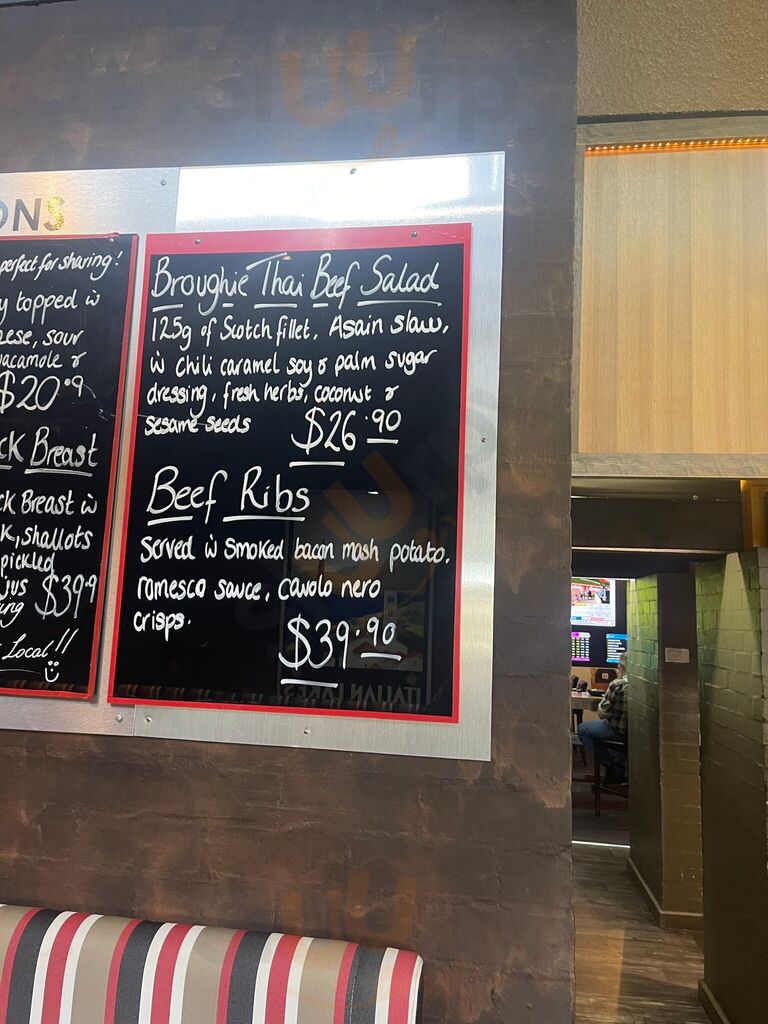 ONS
perfect for sharing!
y topped w
ese, sour
acamole &
$20.9
ck Breast
ck Breast w
k, shallots
pickled
jus
ing $39.9
Local!!
Broughie Thai Beef Salad
125g of Scotch fillet, Asain slaw,
w chili caramel soy & palm sugar
dressing, fresh herbs, coconut &
sesame seeds $26.90
Beef Ribs
Served w smoked bacon mash potato,
romesco sauce, cavolo nero
crisps. $39.90